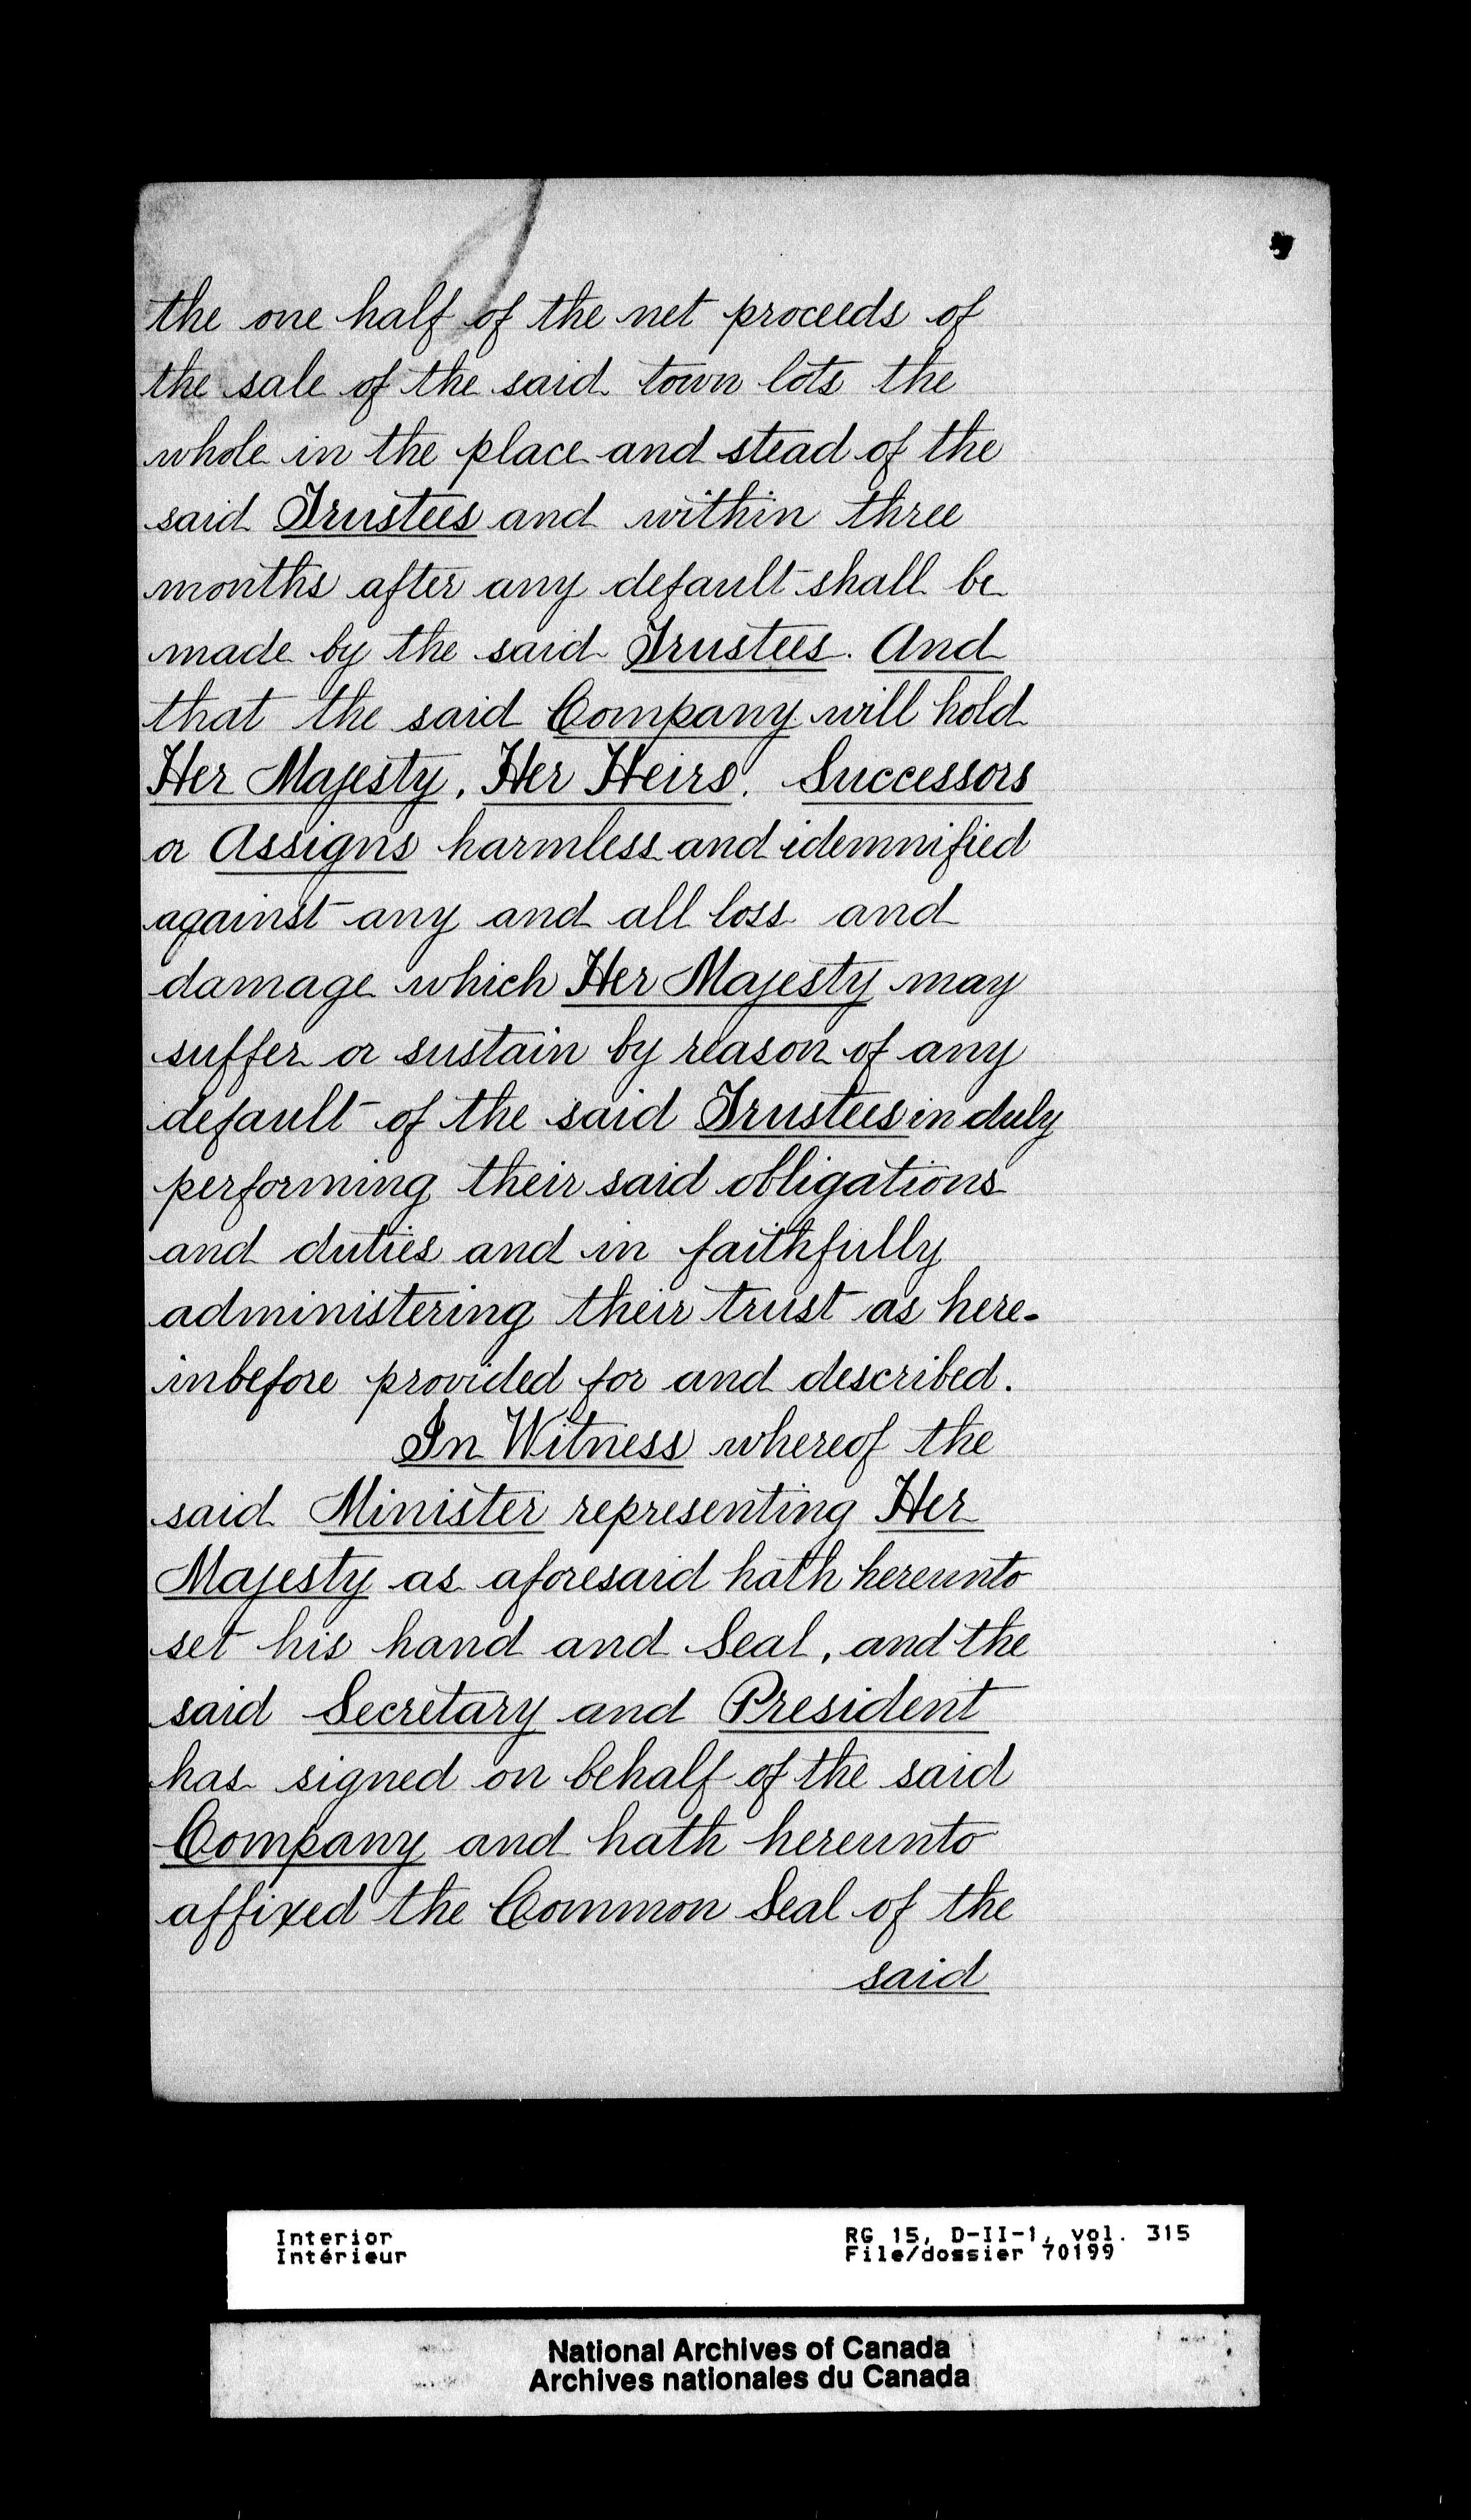 the one half of the net proceeds of
the sale of the said town lots the
whole in the place and stead of the
said Trustees and within three
months after any default shall be
made by the said Trustees. And
that the said Company will hold
Her Majesty, Her Heirs, Successors
or Assigns harmless and idemnified
against any and all loss and
damage which Her Majesty may
suffer or sustain by reason of any
default of the said Trustees in duly
performing their said obligations
and duties and in faithfully
administering their trust as here-
inbefore provided for and described.
In Witness whereof the
said Minister representing Her
Majesty as aforesaid hath hereunto
set his hand and Seal, and the
said Secretary and President
has signed on behalf of the said
Company and hath hereunto
affixed the Common Seal of the
said
Interior
Intérieur
RG 15, D-II-1, vol. 315
File/dossier 70199
National Archives of Canada
Archives nationales du Canada